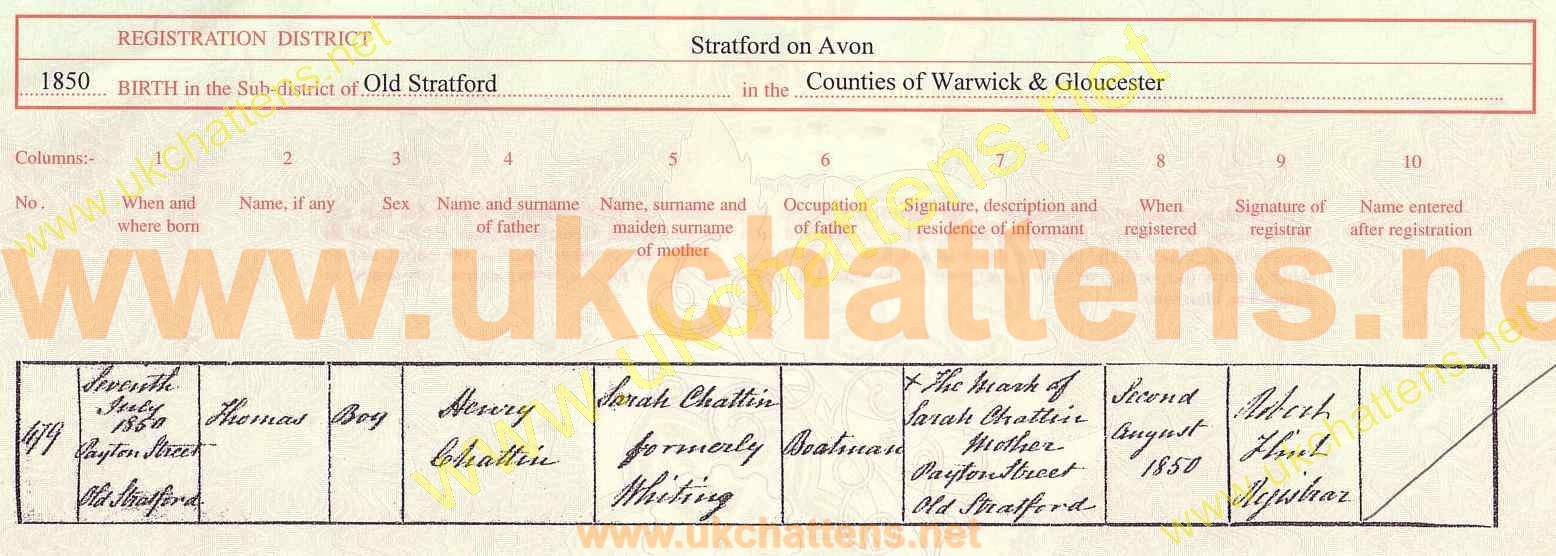 REGISTRATION DISTRICT Stratford on Avon
1850 BIRTH in the Sub-district of Old Stratford in the Counties of Warwick & Gloucester
Columns:- 1 2 3 4 5 6 7 8 9 10
No. When and where born Name, if any Sex Name and surname of father Name, surname and maiden surname of mother Occupation of father Signature, description and residence of informant When registered Signature of registrar Name entered after registration
www.ukchattens.ne
479
Seventh
July
1850
Payton Street
Old Stratford
Thomas
Boy
Henry
Chattin
Sarah Chattin
formerly
Whiting
Boatman
x The Mark of
Sarah Chattin
Mother
Payton Street
Old Stratford
Second
August
1850
Robert
Flint
Registrar
www.ukchattens.net
www.ukchattens.net
www.ukchattens.net
www.ukchattens.net